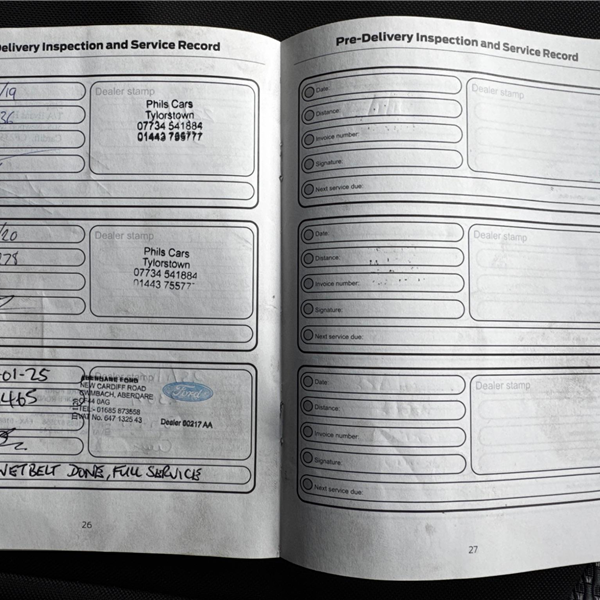 Delivery Inspection and Service Record
/19
36
Dealer stamp
Phils Cars
Tylorstown
07734 541884
/20
278
Dealer stamp
Phils Cars
Tylorstown
07734 541884
01-25
465
Dealer stamp
ABERDARE FORD
NEW CARDIFF ROAD
CWMBACH, ABERDARE
CF44 0AG
TEL:- 01685 873658
VAT No. 647 1325 43
Ford
Dealer 60217 AA
WETBELT DONE, FULL SERVICE
26
Pre-Delivery Inspection and Service Record
Date:
Distance:
Invoice number:
Signature:
Next service due:
Dealer stamp
Date:
Distance:
Invoice number:
Signature:
Next service due:
Dealer stamp
Date:
Distance:
Invoice number:
Signature:
Next service due:
Dealer stamp
27